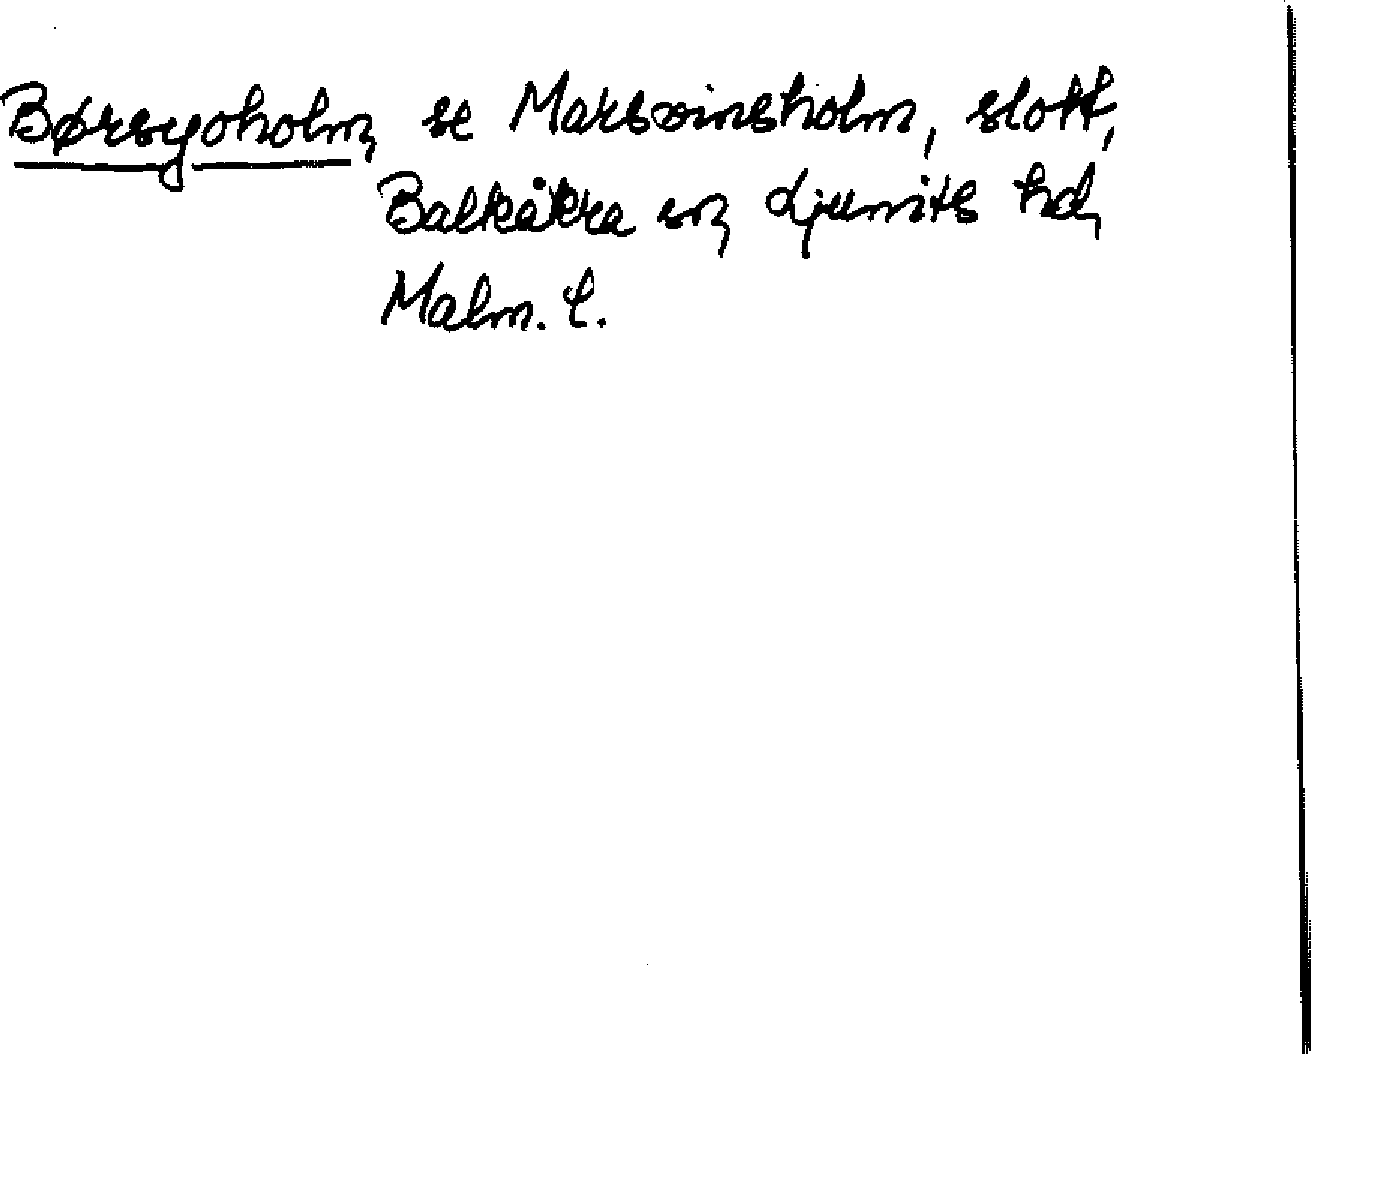 Børsyoholm, se Marsvinsholm, slott,
Balkåkra sn, Ljunits hd,
Malm. l.